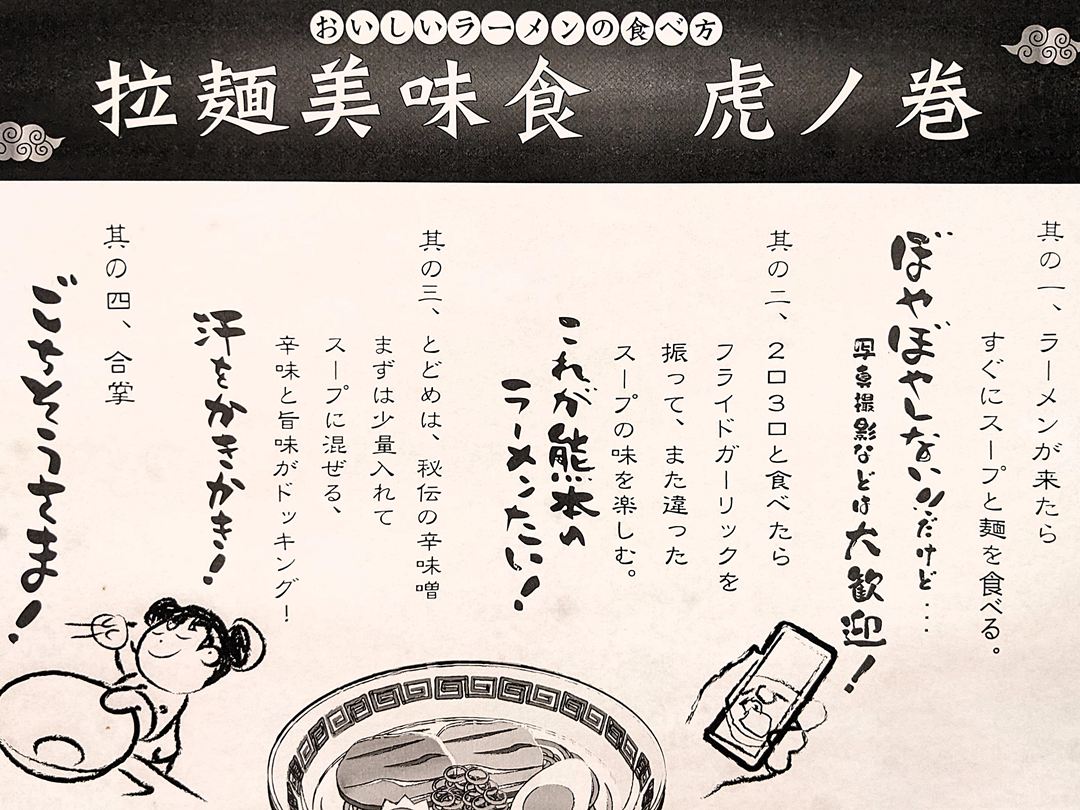 おいしいラーメンの食べ方
拉麺美味食 虎ノ巻
其の一、ラーメンが来たら
すぐにスープと麺を食べる。
ぼやぼやしない!!だけど・・・
写真撮影などは大歓迎!
其の二、2口3口と食べたら
フライドガーリックを
振って、また違った
スープの味を楽しむ。
これが熊本の
ラーメンたい!
其の三、とどめは、秘伝の辛味噌
まずは少量入れて
スープに混ぜる、
辛味と旨味がドッキング!
汗をかきかき!
其の四、合掌
ごちそうさま!